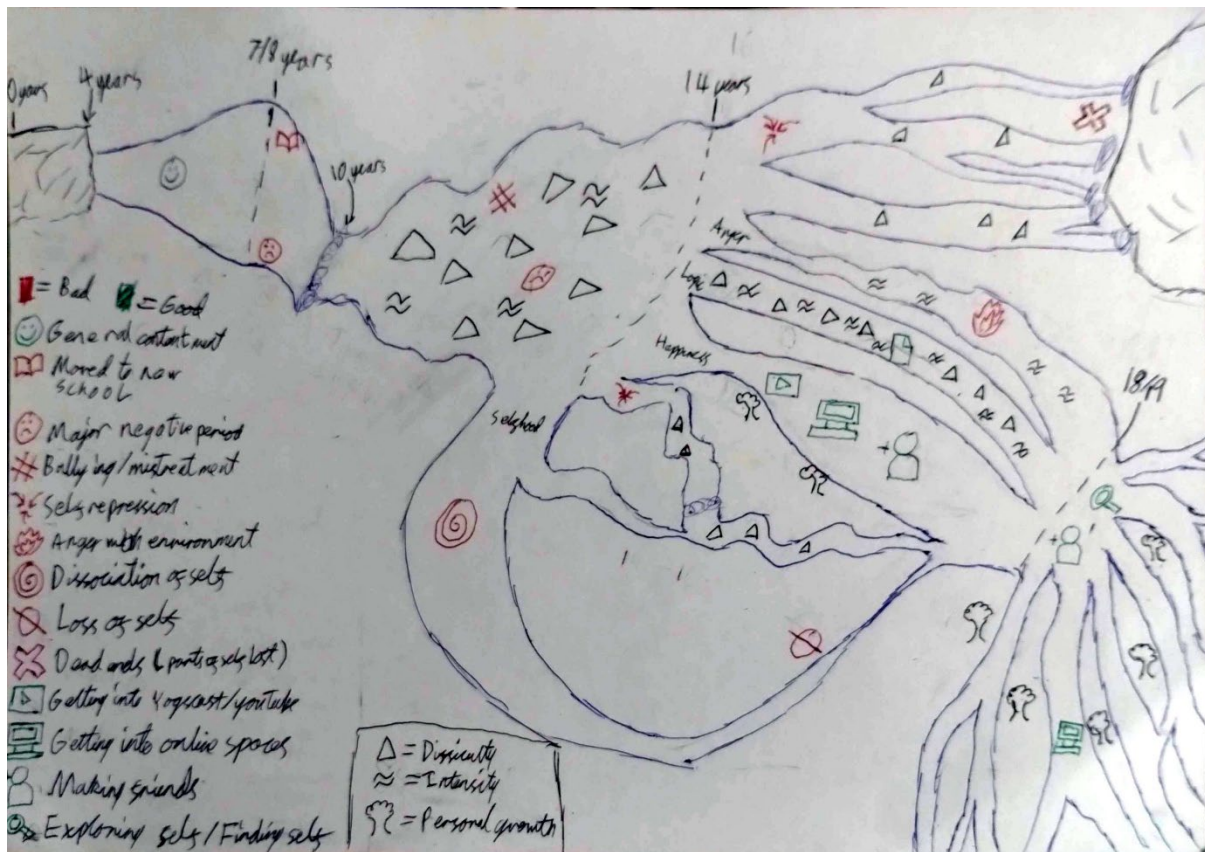 0 years
4 years
7/8 years
10 years
14 years
Anger
Logic
Happiness
Selfhood
18/19
= Bad
= Good
General contentment
Moved to new
school
Major negative period
Bullying/mistreatment
Self repression
Anger with environment
Dissociation of self
Loss of self
Dead ends (parts of self lost)
Getting into Yogscast/youtube
Getting into online spaces
Making friends
Exploring self/Finding self
= Difficulty
= Intensity
= Personal growth